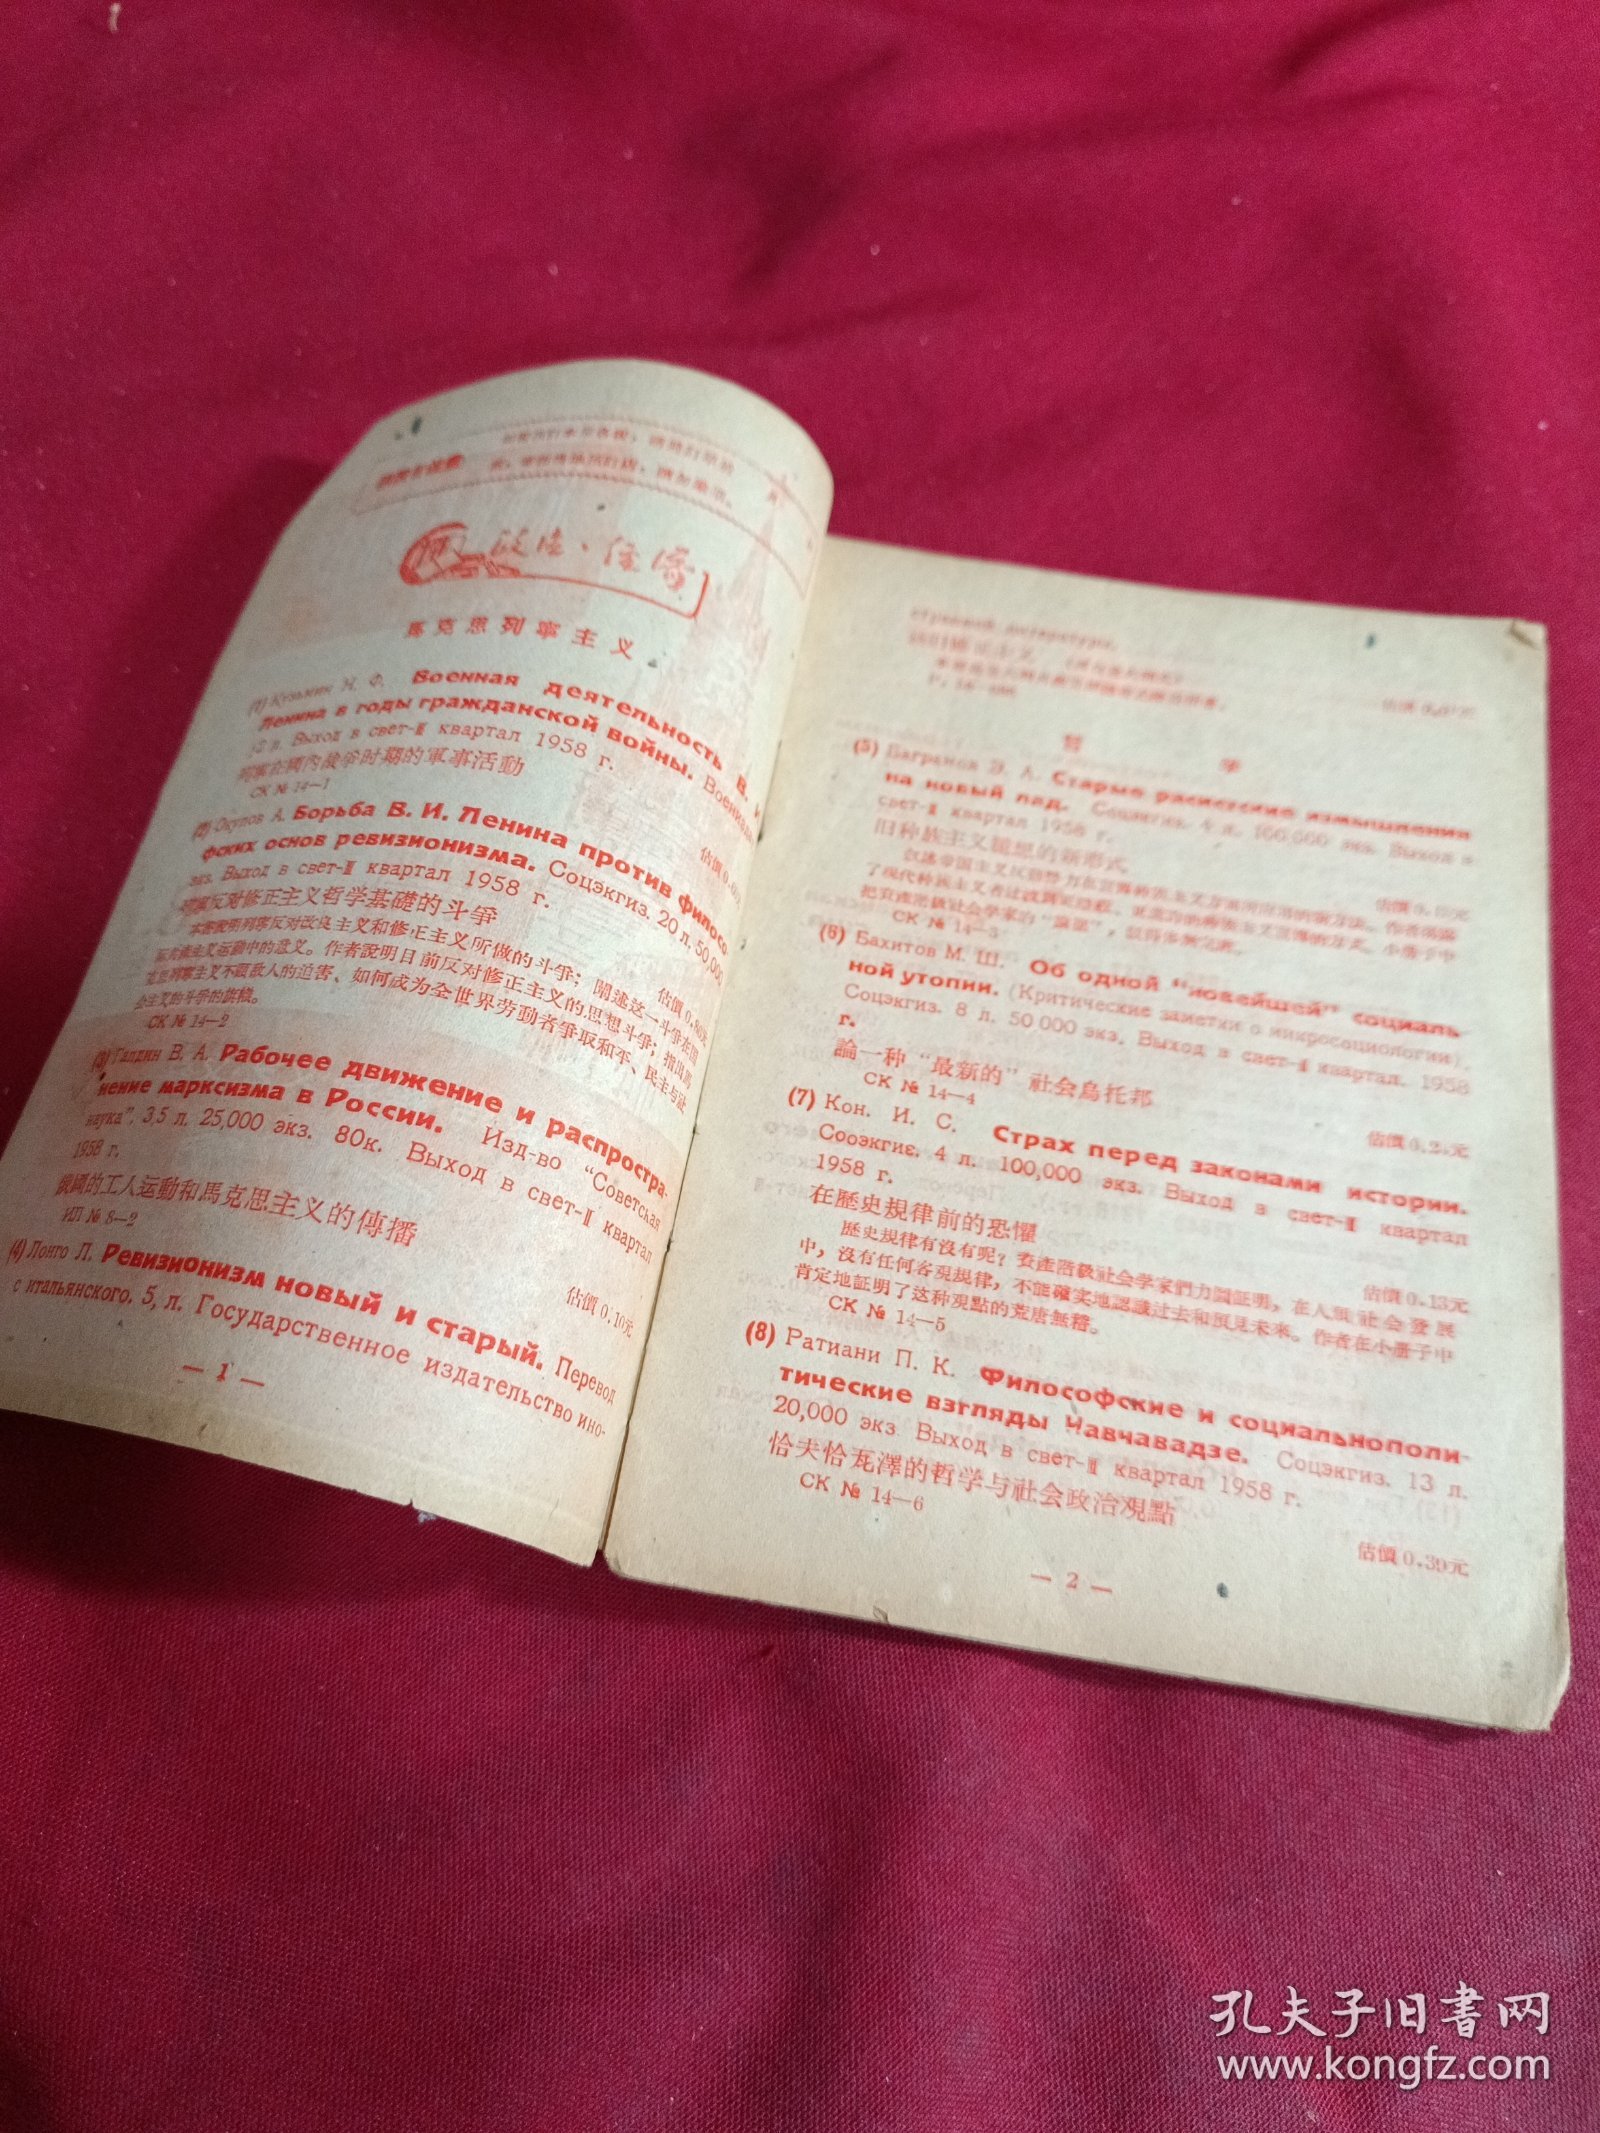 馬克思列寧主义
(1) Кузьмин Н. Ф. Военная деятельность В. И.
Ленина в годы гражданской войны. Воениздат
12 л. Выход в свет-II квартал 1958 г.
列寧在國內战爭时期的軍事活動
СК № 14—1
估價 0.
(2) Окулов А. Борьба В. И. Ленина против филосо-
фских основ ревизионизма. Соцэкгиз. 20 л. 50,000
экз. Выход в свет-II квартал 1958 г.
列寧反对修正主义哲学基礎的斗爭
估價 0.80元
本書說明列寧反对改良主义和修正主义所做的斗爭；闡述这一斗爭在国
际共產主义运動中的意义。作者說明目前反对修正主义的思想斗爭；指出馬
克思列寧主义不顧敌人的迫害、如何成为全世界劳動者爭取和平、民主与社
会主义的斗爭的旗幟。
СК № 14—2
(3) Галдин В. А. Рабочее движение и распростра-
нение марксизма в России. Изд-во "Советская
наука". 3,5 л. 25,000 экз. 80к. Выход в свет-II квартал
1958 г.
俄國的工人运動和馬克思主义的傳播
ИЛ № 8—2
估價 0.10元
(4) Лонго Л. Ревизионизм новый и старый. Перевод
с итальянского. 5, л. Государственное издательство ино-
— 1 —
странной литературы.
哲 学
(5) Баграмов Э. А. Старые расистские измышления
на новый лад. Соцэкгиз. 4 л. 100,000 экз. Выход в
свет-II квартал 1958 г.
旧种族主义臆想的新形式
СК № 14—3
(6) Бахитов М. Ш. Об одной "новейшей" социаль-
ной утопии. (Критические заметки о микросоциологии).
Соцэкгиз. 8 л. 50 000 экз. Выход в свет-II квартал. 1958
г.
論一种“最新的”社会烏托邦
СК № 14—4
估價 0.24元
(7) Кон. И. С. Страх перед законами истории.
Сооэкгиз. 4 л. 100,000 экз. Выход в свет-II квартал
1958 г.
在歷史規律前的恐懼
估價 0.13元
歷史規律有沒有呢？資產階級社会学家們力圖証明，在人類社会發展
中，沒有任何客观規律，不能確实地認識过去和預見未來。作者在小册子中
肯定地証明了这种观點的荒唐無稽。
СК № 14—5
(8) Ратиани П. К. Философские и социальнополи-
тические взгляды Чавчавадзе. Соцэкгиз. 13 л.
20,000 экз Выход в свет-II квартал 1958 г.
恰夫恰瓦澤的哲学与社会政治观點
СК № 14—6
估價 0.39元
— 2 —
孔夫子旧書网
www.kongfz.com